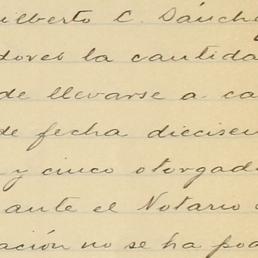 ilberto C. Sánche
dores la cantida
de llevarse a ca
de fecha diecisei
y cinco otorgad
ante el Notario
ación no se ha pod